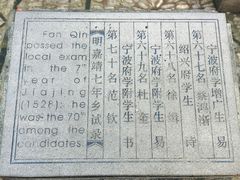 宁波府学增广生 易
第六十七名 蔡鸿渐
绍兴府学生 诗
第六十八名 徐
宁波府学附学生 易
第六十九名 杜奎
宁波府学附学生 书
第七十名 范钦
【明嘉靖七年乡试录】
Fan Qin
passed the
local exam
in the 7th
year of
Jiajing
(1528); he
was the 70th
among the
candidates.